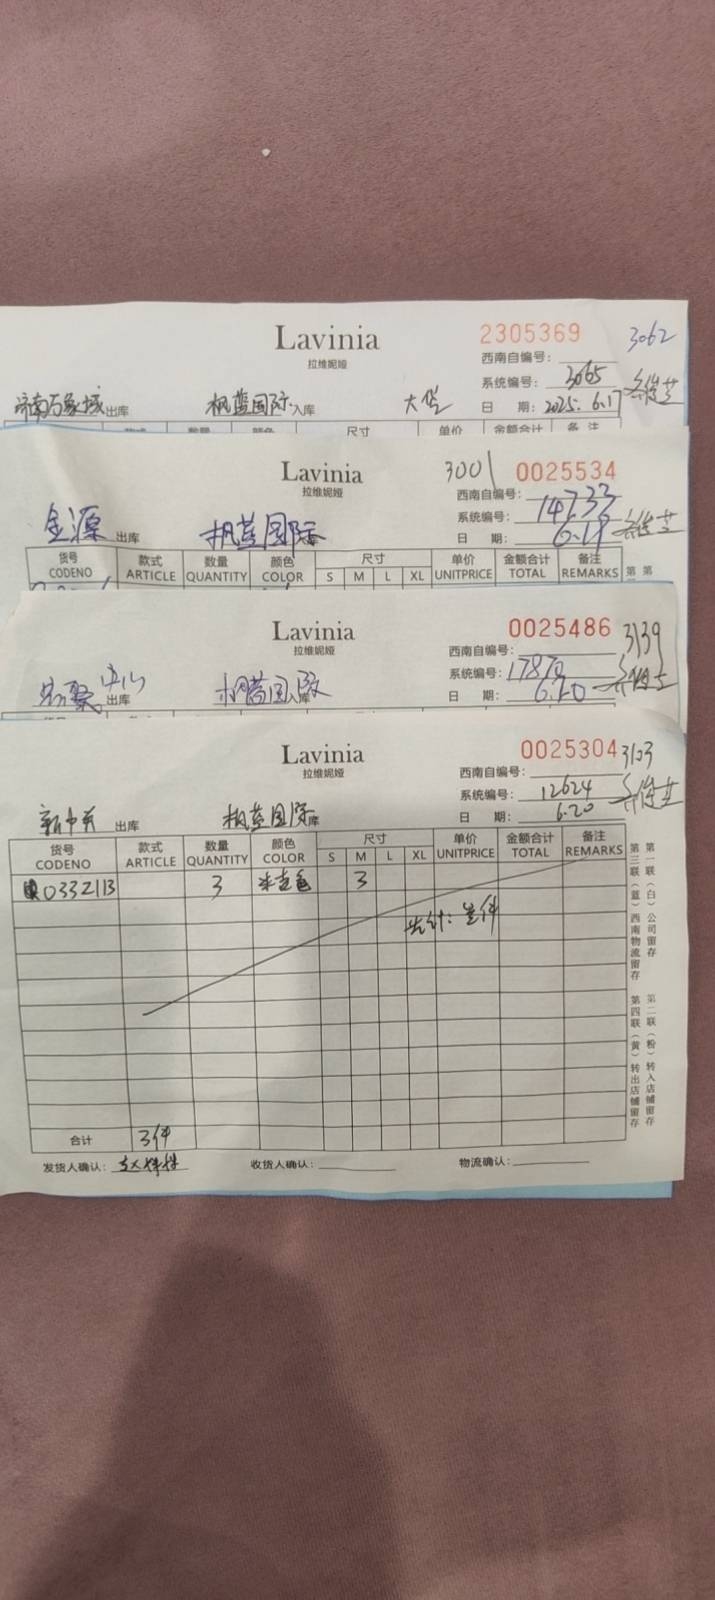 Lavinia
拉维妮娅
2305369
3062
西南自编号:
系统编号: 3065
济南万象城 出库 枫蓝国际 入库 大货 日 期: 2025.6.17
尺寸 单价 金额合计 备注
Lavinia
拉维妮娅
3001 0025534
西南自编号:
系统编号: 14733
金源 出库 枫蓝国际 日 期: 6.19
货号 款式 数量 颜色 尺寸 单价 金额合计 备注
CODENO ARTICLE QUANTITY COLOR S M L XL UNITPRICE TOTAL REMARKS
Lavinia
拉维妮娅
0025486 3139
西南自编号:
系统编号: 17870
出库 枫蓝国际 日 期: 6.20
Lavinia
拉维妮娅
0025304 3103
西南自编号:
系统编号: 12624
新中关 出库 枫蓝国际 库 日 期: 6.20
货号 款式 数量 颜色 尺寸 单价 金额合计 备注
CODENO ARTICLE QUANTITY COLOR S M L XL UNITPRICE TOTAL REMARKS
0332113 3 米杏色 3
共计: 叁件
合计 3件
发货人确认: 收货人确认: 物流确认:
第一联(白)公司留存
第三联(蓝)西南物流留存
第二联(粉)转入店铺留存
第四联(黄)转出店铺留存